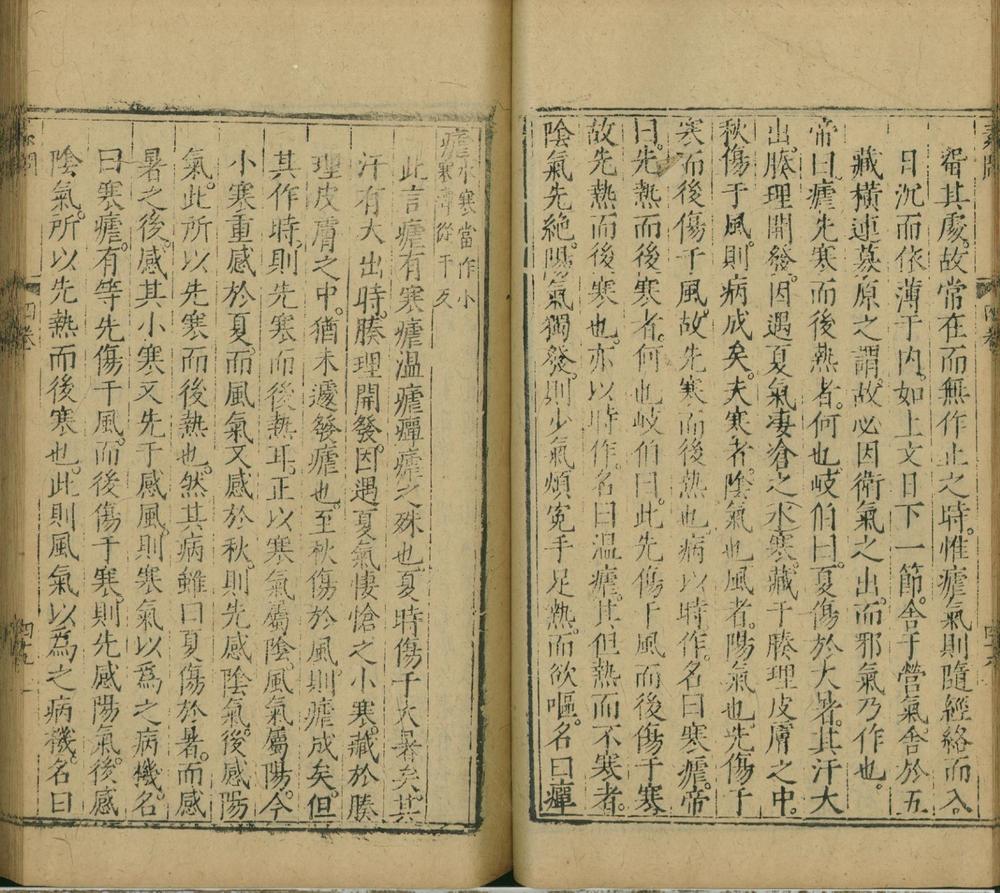 畱其處故常在而無作止之時惟瘧氣則隨經絡而入
日沉而依薄于内如上文日下一節舍于營氣舍於五
藏橫連募原之謂故必因衛氣之出而邪氣乃作也
帝曰瘧先寒而後熱者何也岐伯曰夏傷於大暑其汗大
出腠理開發因遇夏氣凄滄之水寒藏于腠理皮膚之中
秋傷于風則病成矣夫寒者陰氣也風者陽氣也先傷于
寒而後傷于風故先寒而後熱也病以時作名曰寒瘧帝
曰先熱而後寒者何也岐伯曰此先傷于風而後傷于寒
故先熱而後寒也亦以時作名曰温瘧其但熱而不寒者
陰氣先絶陽氣獨發則少氣煩冤手足熱而欲嘔名曰癉
瘧水寒當作小
此言瘧有寒瘧温瘧癉瘧之殊也夏時傷于大暑矣其
汗有大出時腠理開發因遇夏氣悽愴之小寒藏於腠
理皮膚之中猶未遽發瘧也至秋傷於風則瘧成矣但
其作時則先寒而後熱耳正以寒氣屬陰風氣屬陽今
小寒重感於夏而風氣又感於秋則先感陰氣後感陽
氣此所以先寒而後熱也然其病雖曰夏傷於暑而感
暑之後感其小寒又先于感風則寒氣以爲之病機名
曰寒瘧有等先傷于風而後傷于寒則先感陽氣後感
陰氣所以先熱而後寒也此則風氣以爲之病機名曰
四卷